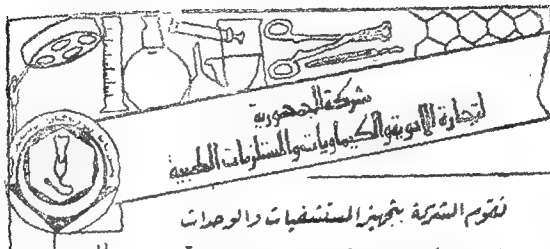 شركة الجمهورية
لتجارة الأدوية والكيماويات والمستلزمات الطبية
تقوم الشركة بتجهيز المستشفيات والوحدات